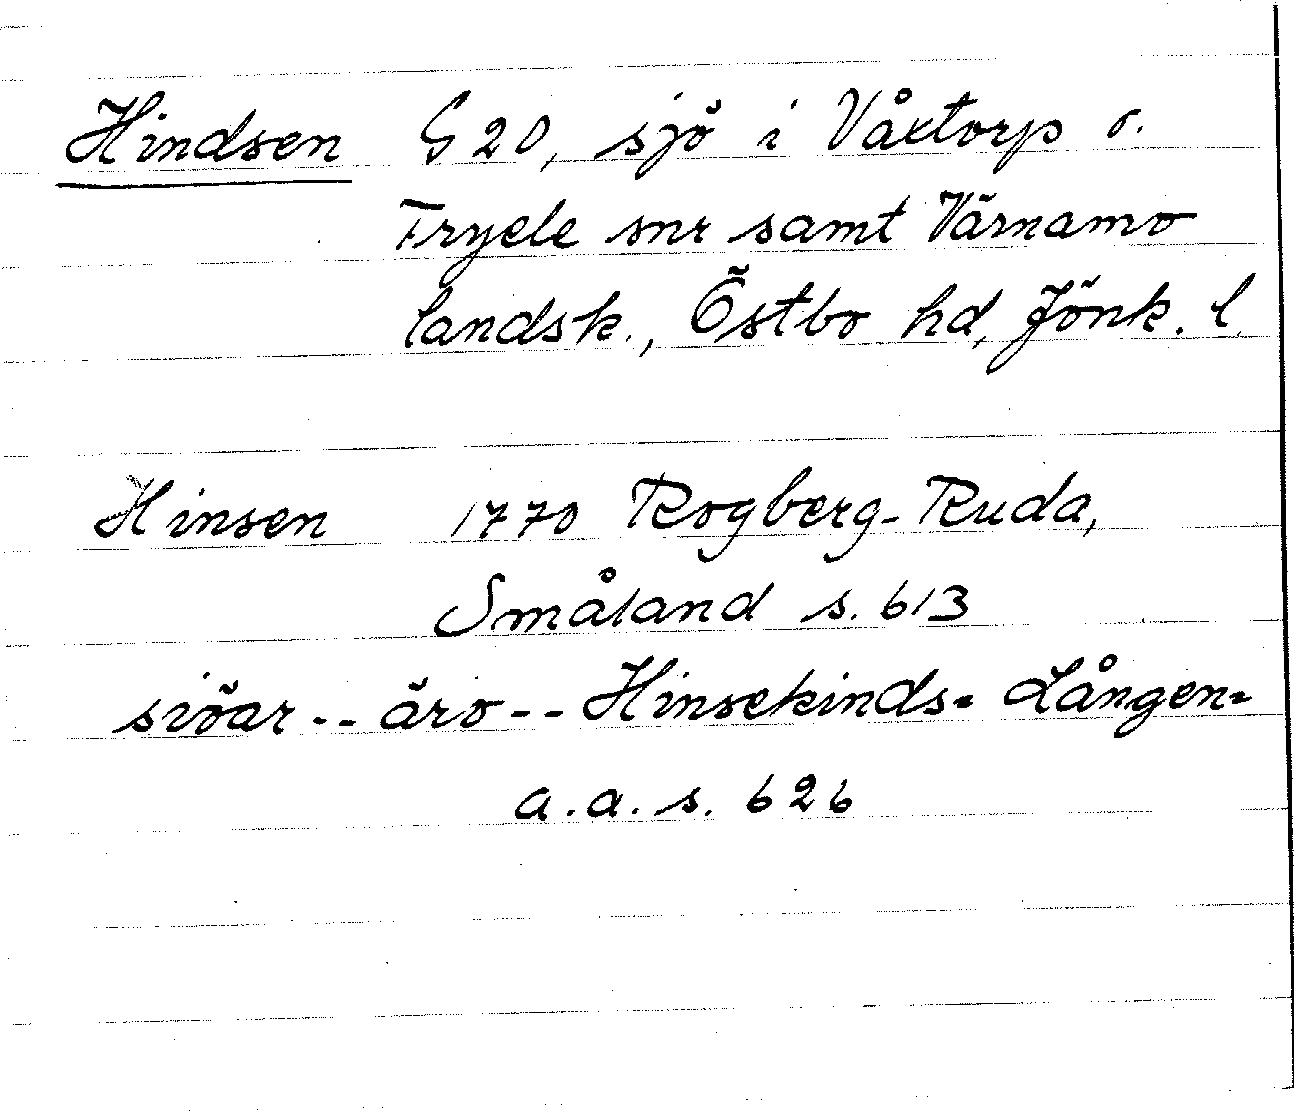 Hindsen G 20, sjö i Våxtorp o.
Fryele snr samt Värnamo
landsk., Östbo hd, Jönk. l.
Hinsen 1770 Rogberg-Ruda,
Småland s. 613
siöar -- äro -- Hinsekinds= Lången=
a.a. s. 626